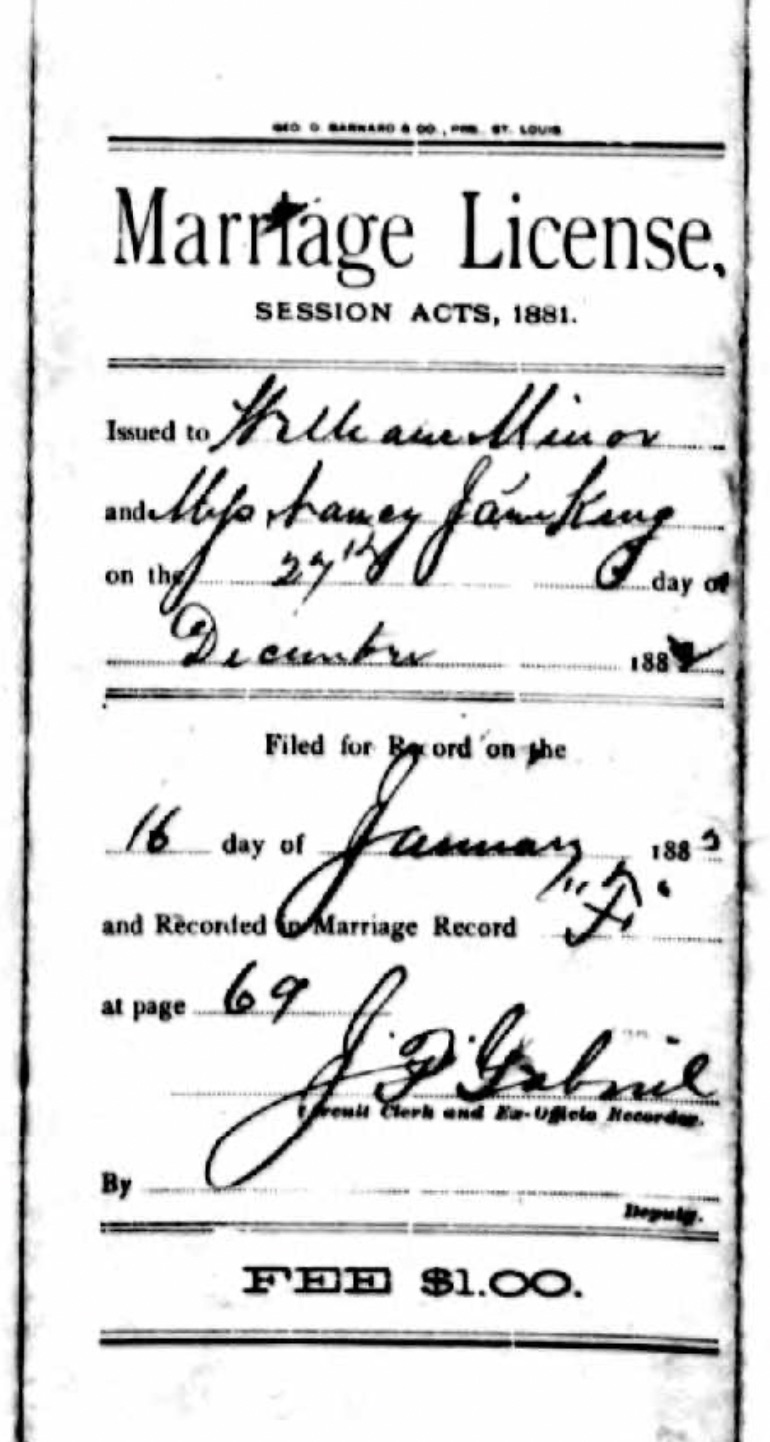 GEO. D. BARNARD & CO., PRS. ST. LOUIS
Marriage License,
SESSION ACTS, 1881.
Issued to William Minor
and Miss Nancy Jane King
on the 27th day of
December 188
Filed for Record on the
16 day of January 1883
and Recorded in Marriage Record "F"
at page 69
J. P. Gabriel
Circuit Clerk and Ex-Officio Recorder.
By
Deputy.
FEE $1.00.